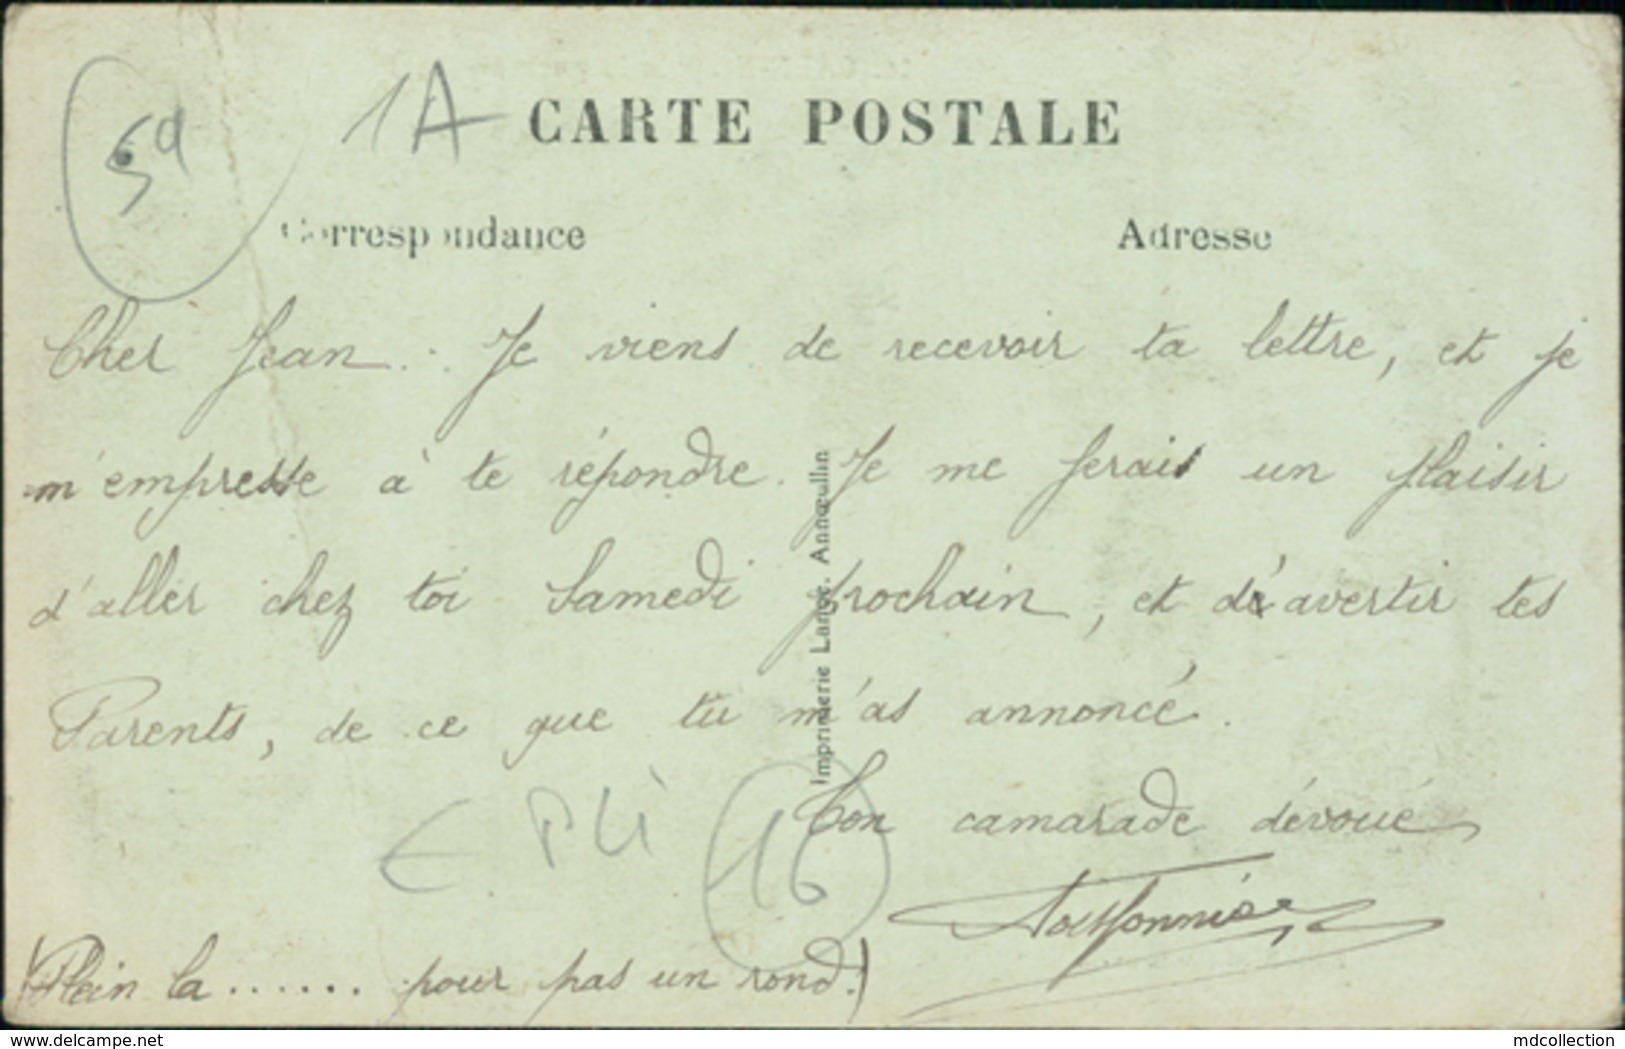 59
1A
CARTE POSTALE
Correspondance
Adresse
Cher Jean. : Je viens de recevoir ta lettre, et je
m'empresse à te répondre. Je me ferais un plaisir
d'aller chez toi Samedi prochain, et d'avertir tes
Parents, de ce que tu m'as annoncé.
Ton camarade dévoué
(Plein la ...... pour pas un rond!)
E PLi 16
Imprimerie Lange. Annœullin
www.delcampe.net
mdcollection